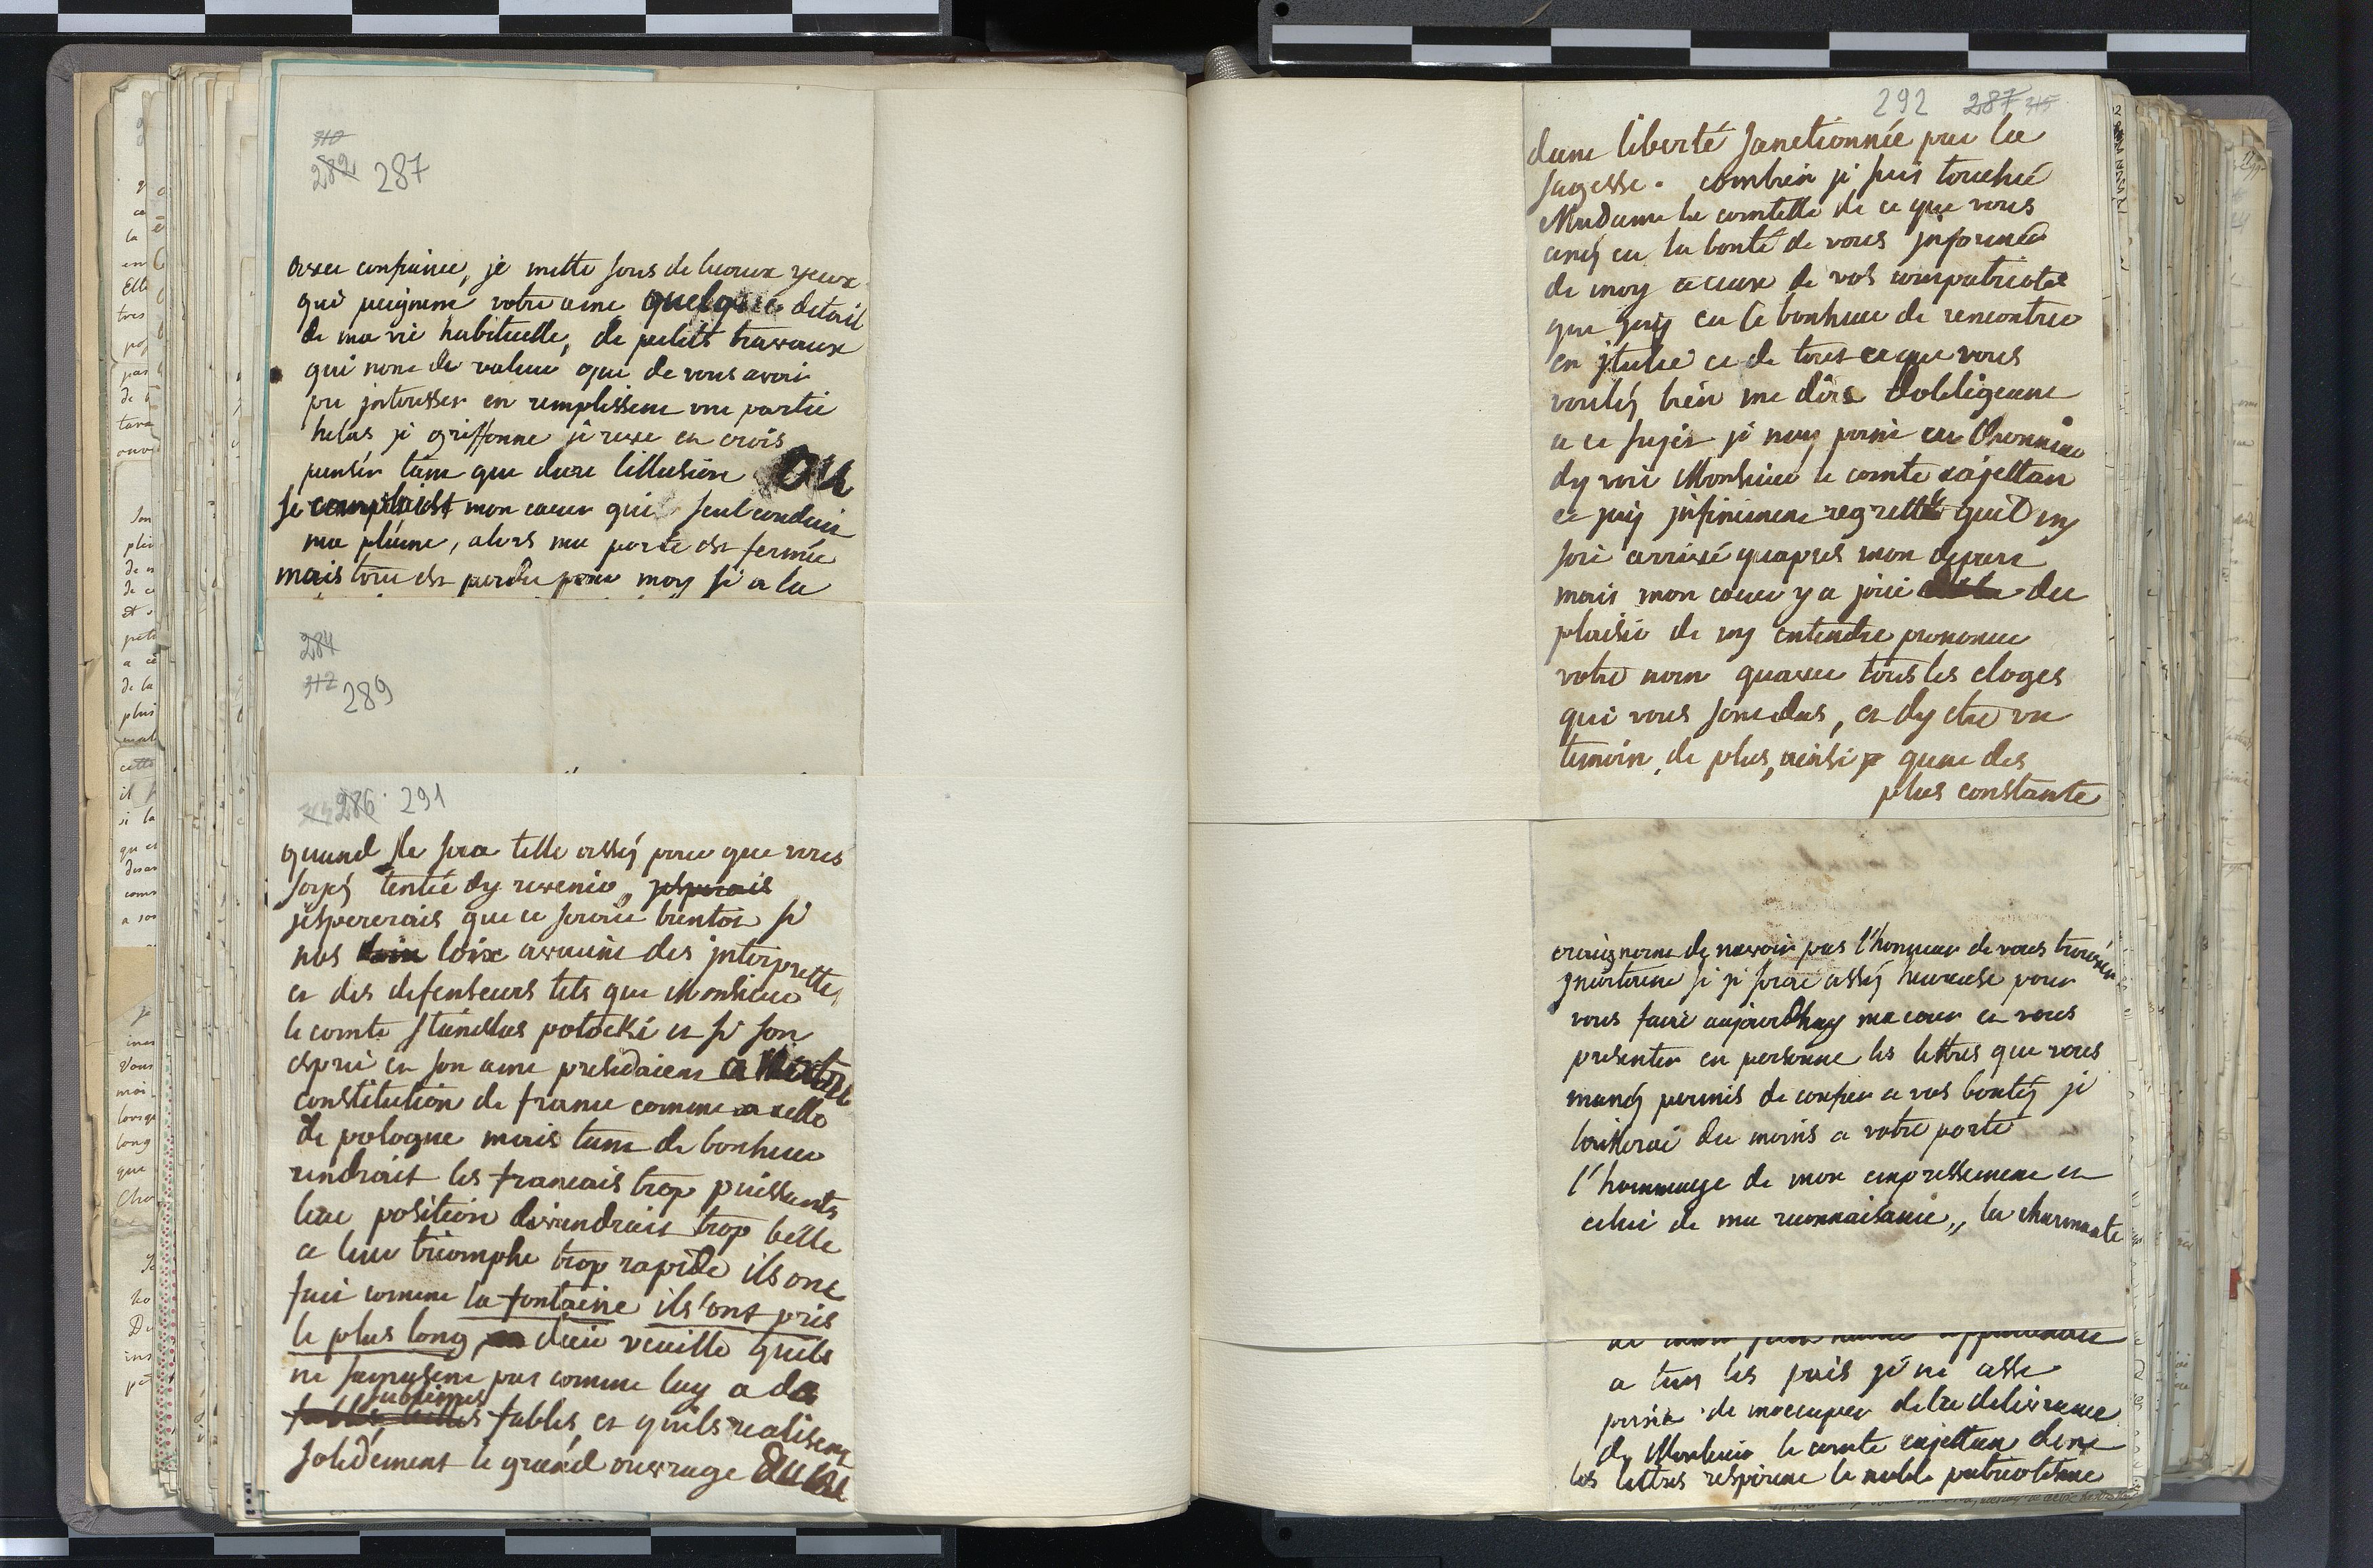 310
282 287
avec confiance, je mette sous de beaux yeux
qui peignent votre ame quelque detail
de ma vie habituelle, de petits travaux
qui nont de valeur que de vous avoir
pu jnteresser en remplissent une partie
helas je griffonne je reve et crois
penser tant que dure lillusion Ou
se complaist mon coeur qui seul conduit
ma plume, alors ma porte est fermée
mais tout est perdu pour moy si a la
284
312 289
286 291
quand le sera telle assés pour que vous
soyés tentée dy revenir, jesperais
jespererais que ce seroit bientot si
nos loix avaient des jnterprettes
et des defenseurs tels que Monsieur
le comte stanislas potocki et si son
esprit et son ame presidaient a nostre
constitution de france comme a celle
de pologne mais tant de bonheur
rendroit les francais trop puissants
leur position deviendrait trop belle
et leur triomphe trop rapide ils ont
fait comme la fontaine ils'ont pris
le plus long dieu veuille quils
ne samusent pas comme luy a de
sublimes
fables belles fables, et quils realisent
solidement le grand ouvrage dune
292 287 315
dune liberté sanctionnée par la
sagesse. combien je suis touchée
Madame la comtesse de ce que vous
avés eu la bonté de vous jnformer
de moy a ceux de vos compatriotes
que jay eu le bonheur de rencontrer
en jtalie et de tout ce que vous
voulés bien me dire dobligeant
a ce sujet je nay point eu lhonneur
dy voir Monsieur le comte cajettan
et jay jnfiniment regretté quil ny
soit arrivé quapres mon depart
mais mon coeur y a joui du
plaisir de ny entendre prononcer
votre nom quavec tous les eloges
qui vous sont dus, et dy etre un
temoin de plus, ainsi quune des
plus constante
craignant de navoir pas l'honneur de vous trouver
jncertaine si je serai assés heureuse pour
vous faire aujourdhuy ma cour et vous
presenter en personne les lettres que vous
mavés permis de confier a vos bontés je
laisserai du moins a votre porte
l'hommage de mon empressement et
celui de ma reconnaisance,, la charmante
a tous les puis je ne asse
de moccuper de la delivrance
de Monsieur le comte cajettan dont
les lettres respirent le noble patriotisme